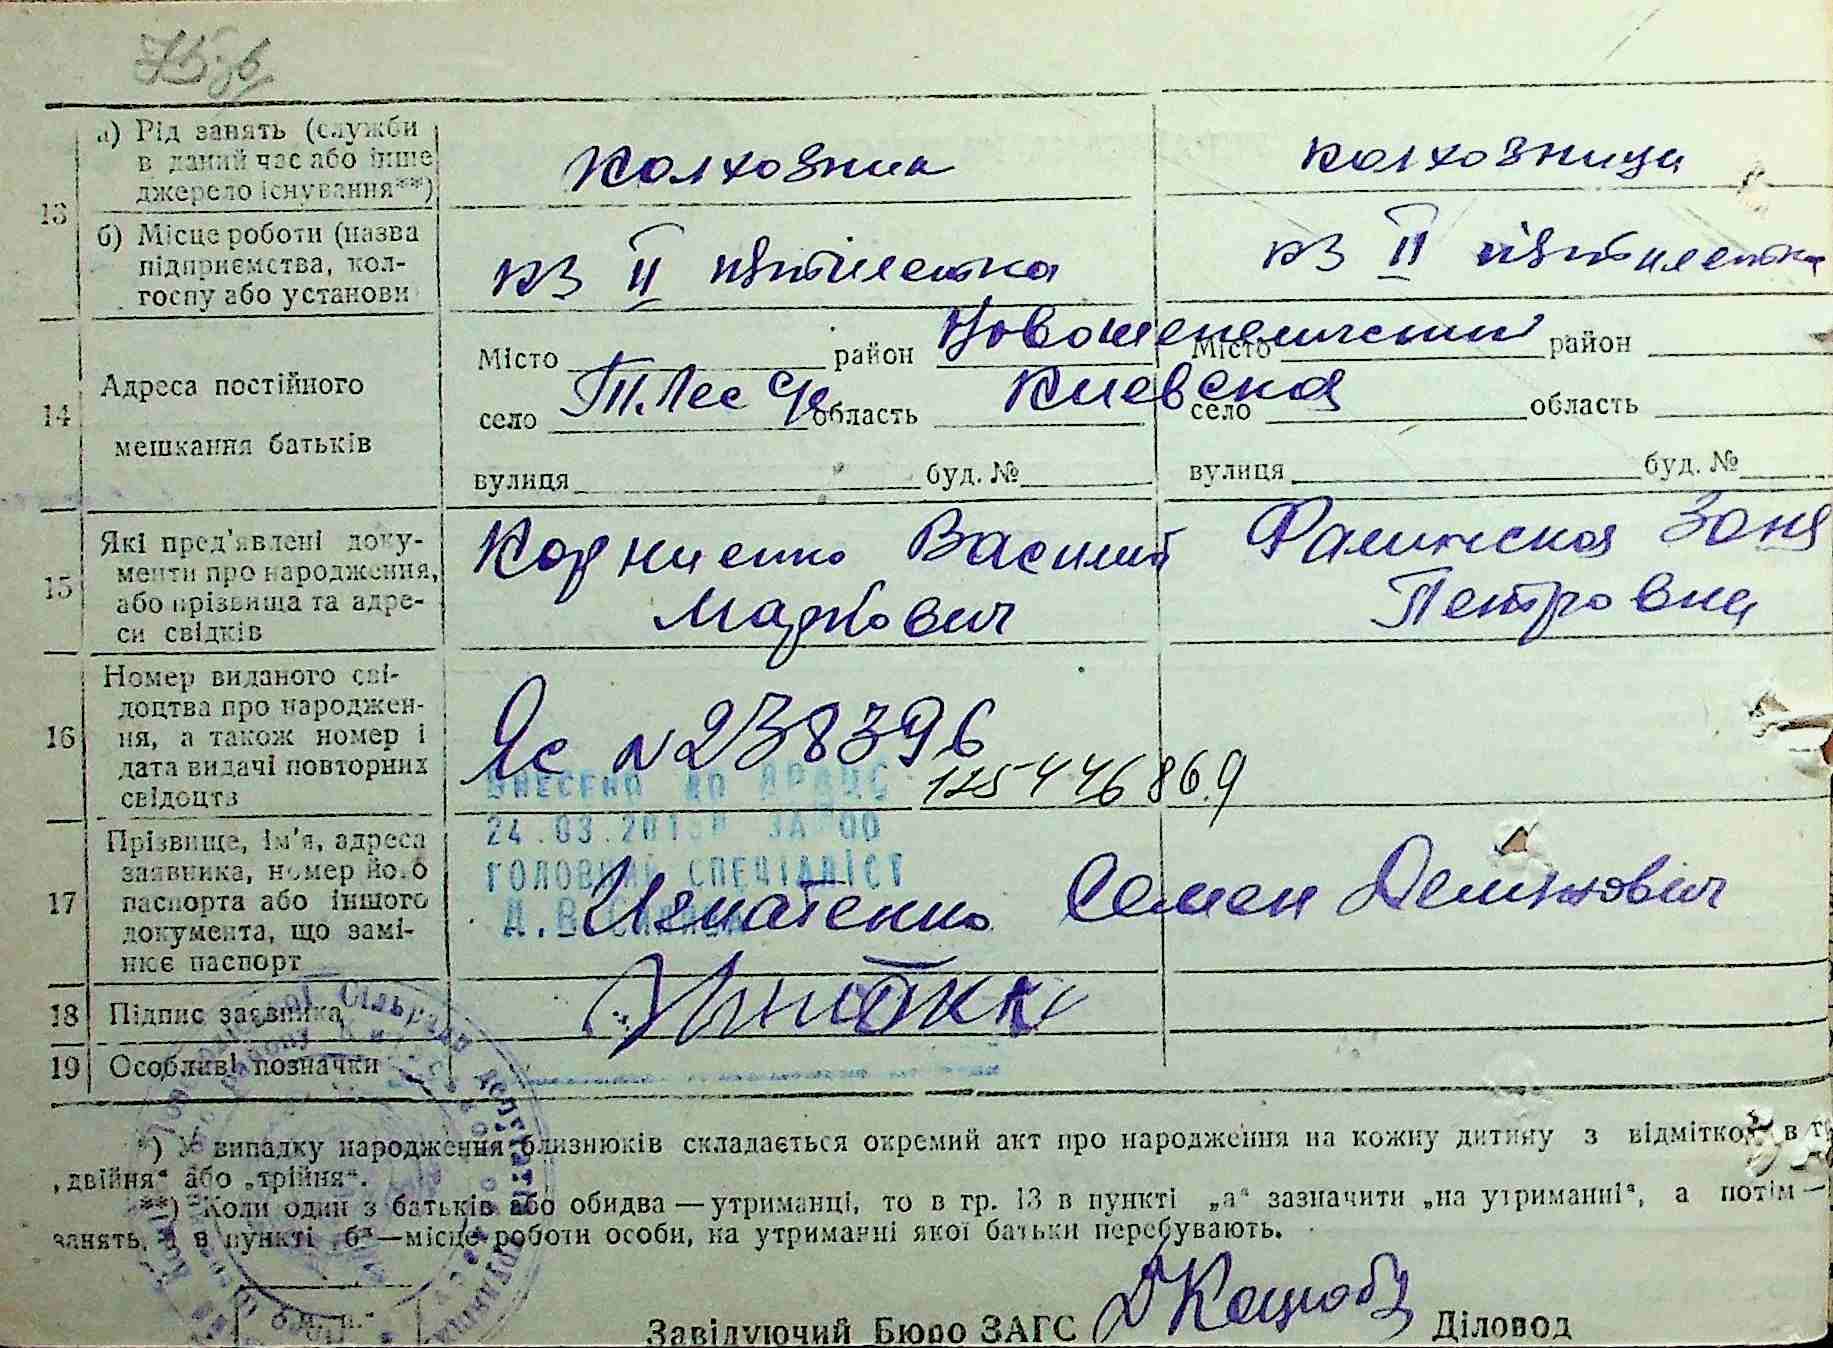 13
а) Рід занять (служби
в даний час або інше
джерело існування**)
колхозник
колхозница
б) Місце роботи (назва
підприємства, кол-
госпу або установи
кз II пятилетка
кз II пятилетка
14
Адреса постійного
мешкання батьків
Місто район Новошепеличский
село Т.Лес область Киевская
вулиця буд. №
Місто район
село область
вулиця буд. №
15
Які пред'явлені доку-
менти про народження,
або прізвища та адре-
си свідків
Корниенко Василий
Маркович
Зоня
Петровна
16
Номер виданого сві-
доцтва про народжен-
ня, а також номер і
дата видачі повторних
свідоцтв
Яс №238396
125446869
ВНЕСЕНО ДО ДРАЦС
24.03.201
ГОЛОВНИЙ СПЕЦІАЛІСТ
17
Прізвище, ім'я, адреса
заявника, номер його
паспорта або іншого
документа, що замі-
нює паспорт
Игнатенко Семен
18
Підпис заявника
19
Особливі позначки
*) У випадку народження близнюків складається окремий акт про народження на кожну дитину з відміткою в
„двійня“ або „трійня“.
**) Коли один з батьків або обидва — утриманці, то в гр. 13 в пункті „а“ зазначити „на утриманні“, а потім —
занять, і в пункті „б“—місце роботи особи, на утриманні якої батьки перебувають.
Завідуючий Бюро ЗАГС
Діловод